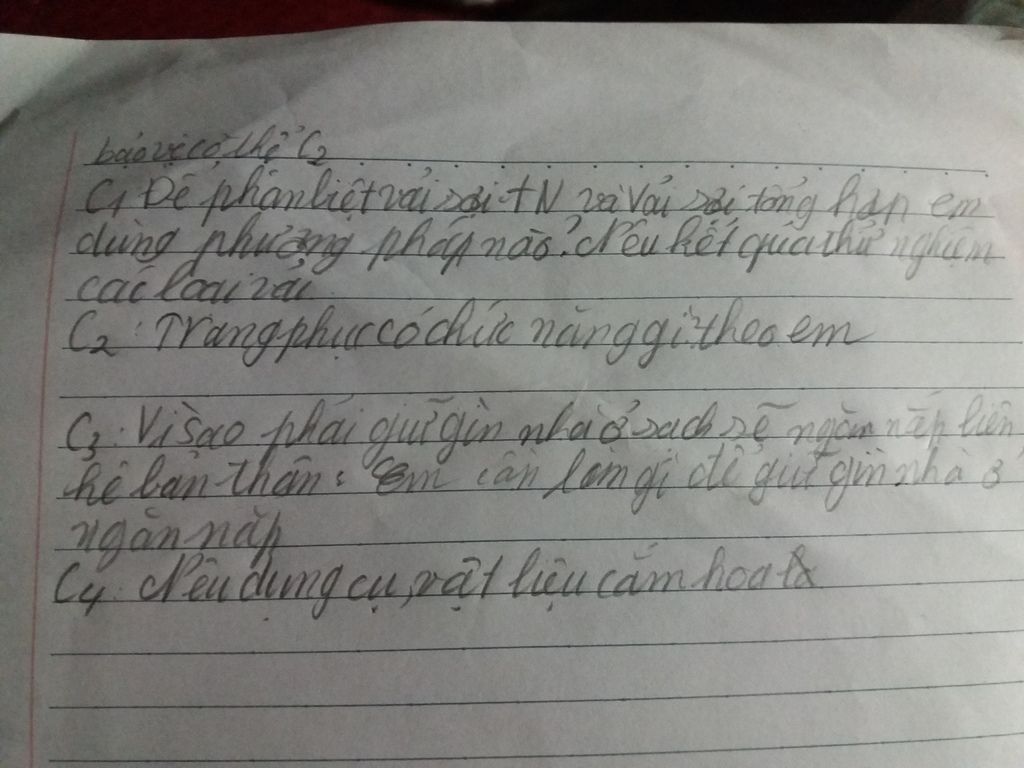 bảo vệ cơ thể C2
C1 Để phân biệt vải sợi TN và Vải sợi tổng hợp em
dùng phương pháp nào? Nêu kết quả thử nghiệm
các loại vải
C2: Trang phục có chức năng gì? theo em
C3: Vì sao phải giữ gìn nhà ở sạch sẽ ngăn nắp liên
hệ bản thân: Em cần làm gì để giữ gìn nhà ở
ngăn nắp
C4: Nêu dụng cụ, vật liệu cắm hoa